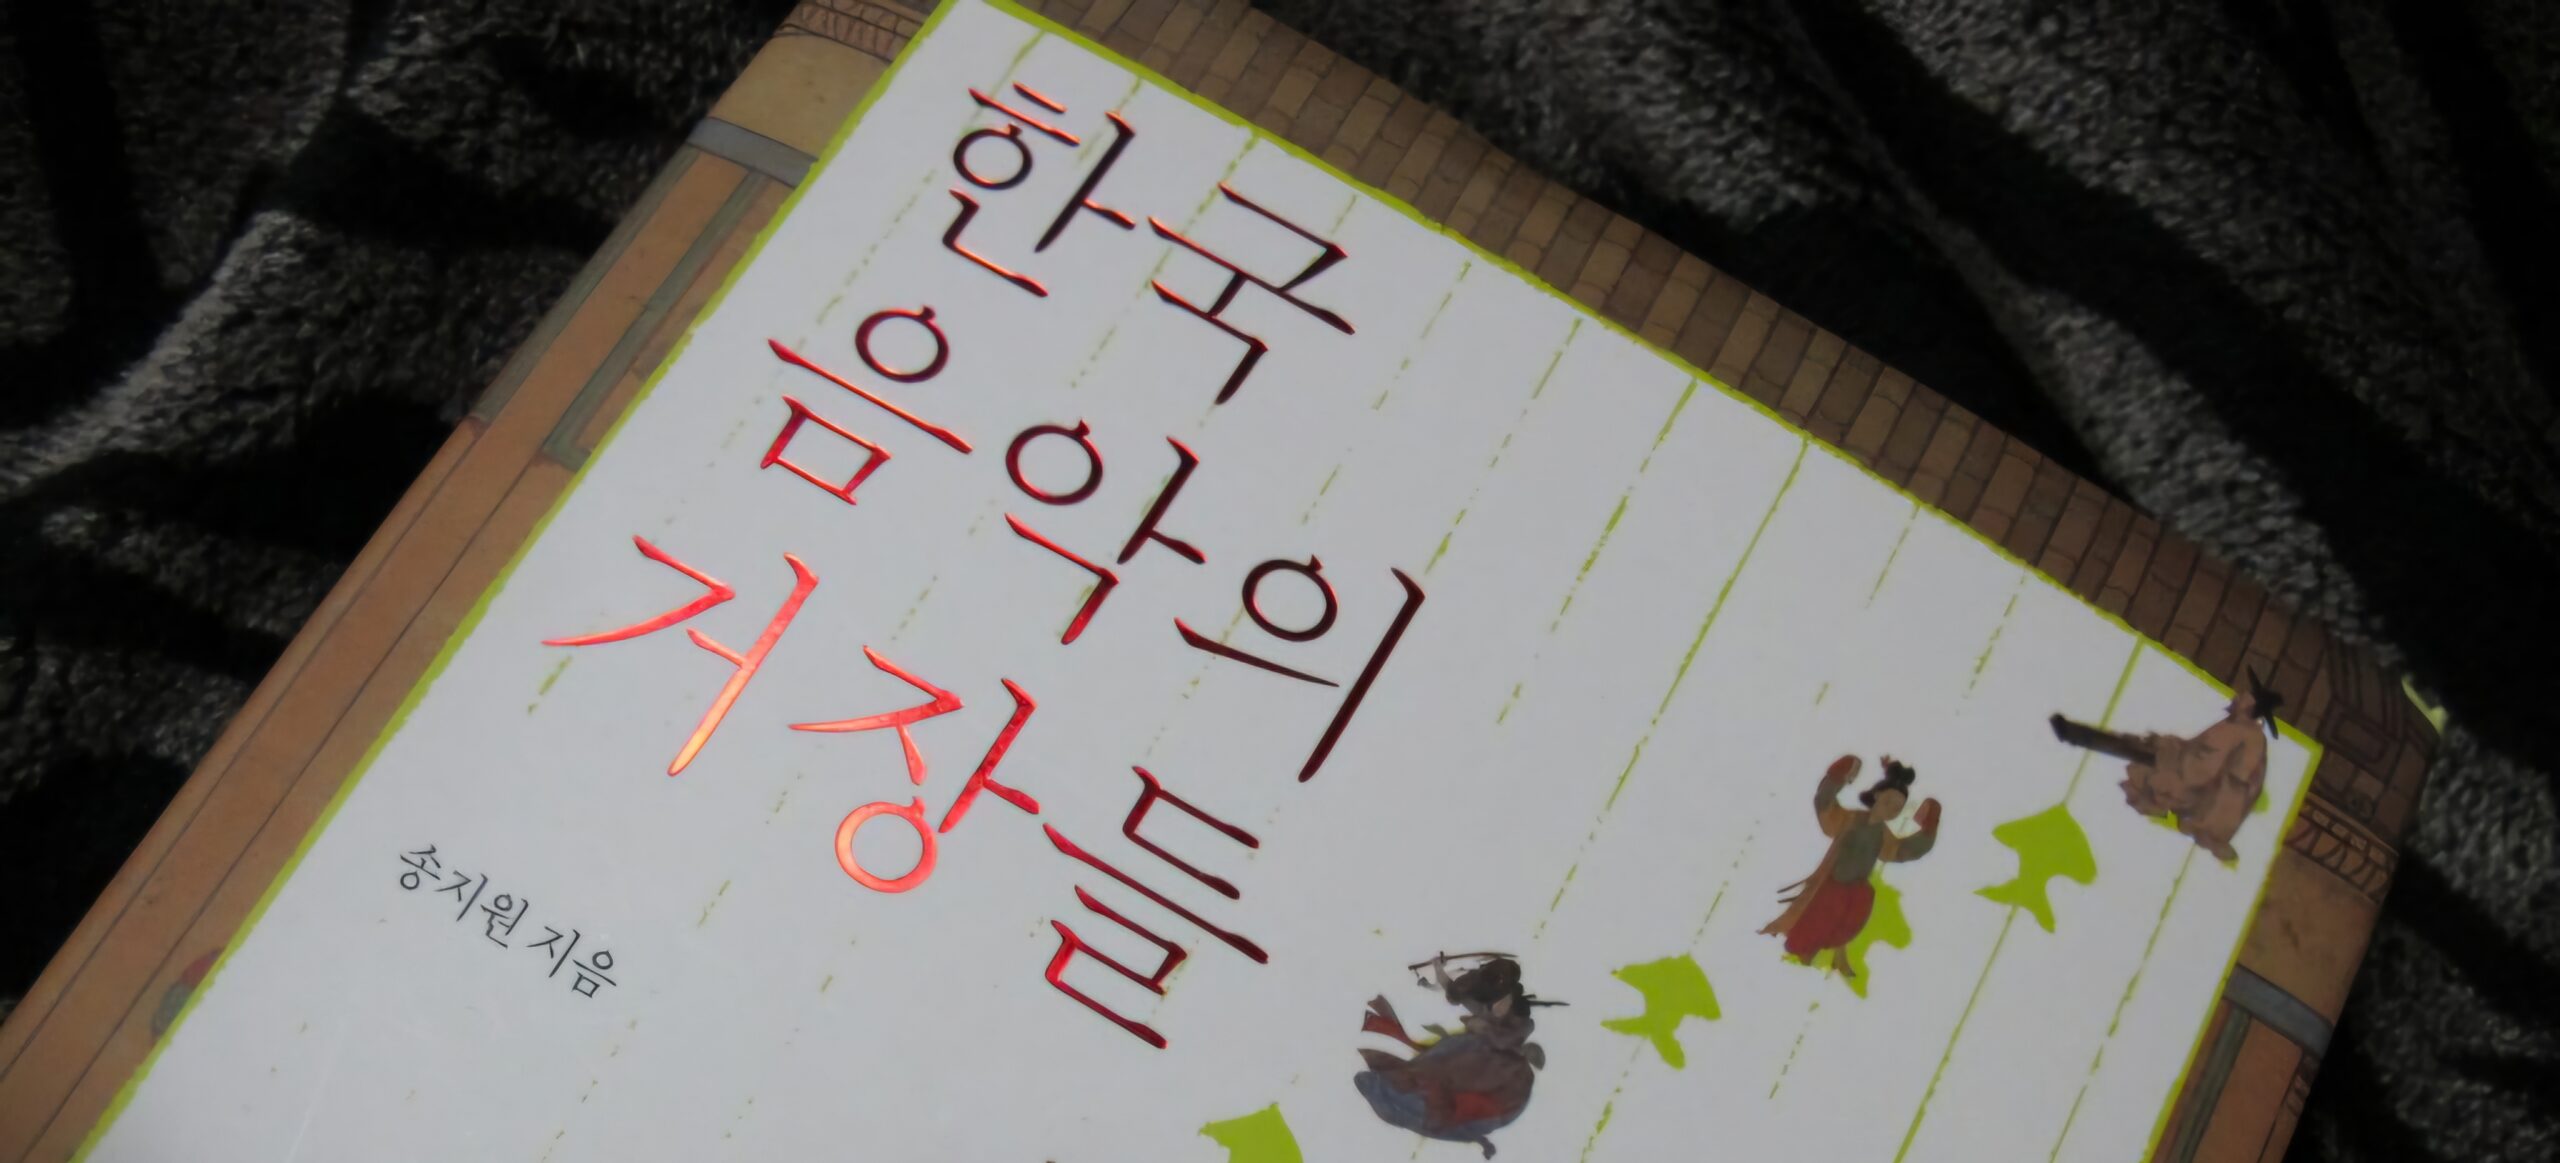 한국
음악의
거장들
송지원 지음